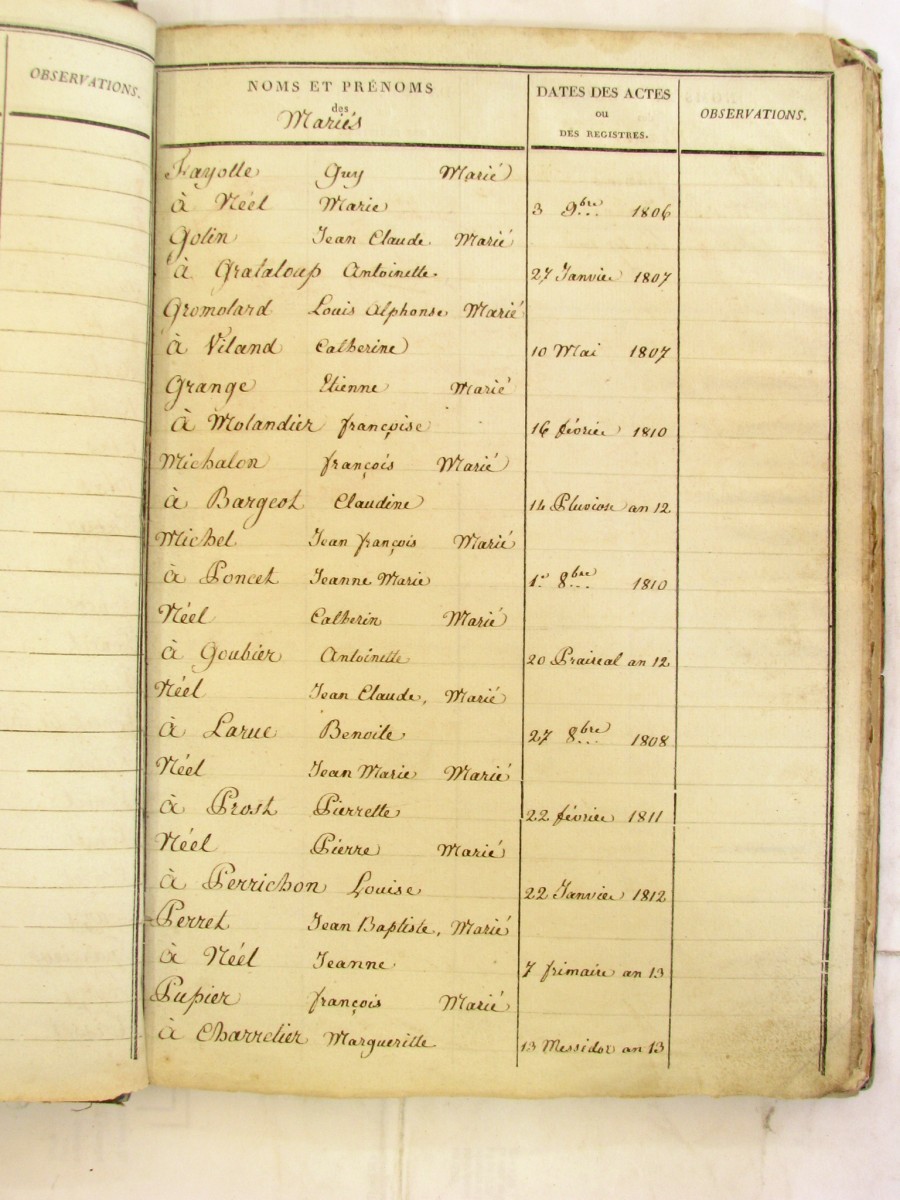 OBSERVATIONS.
NOMS ET PRÉNOMS
des
Mariés
DATES DES ACTES
ou
DES REGISTRES.
OBSERVATIONS.
Fayolle Guy Marié
à Néel Marie 3 9bre 1806
Golin Jean Claude Marié
à Grataloup Antoinette 27 Janvier 1807
Gromolard Louis Alphonse Marié
à Viland Catherine 10 Mai 1807
Grange Etienne Marié
à Molandier françoise 16 février 1810
Michalon françois Marié
à Bargeot Claudine 14 Pluviose an 12
Michel Jean françois Marié
à Poncet Jeanne Marie 1er 8bre 1810
Néel Catherin Marié
à Goubier Antoinette 20 Prairial an 12
Néel Jean Claude, Marié
à Larue Benoite 27 8bre 1808
Néel Jean Marie Marié
à Prost Pierrette 22 février 1811
Néel Pierre Marié
à Perrichon Louise 22 Janvier 1812
Perret Jean Baptiste, Marié
à Néel Jeanne 7 frimaire an 13
Pupier françois Marié
à Charretier Margueritte 13 Messidor an 13